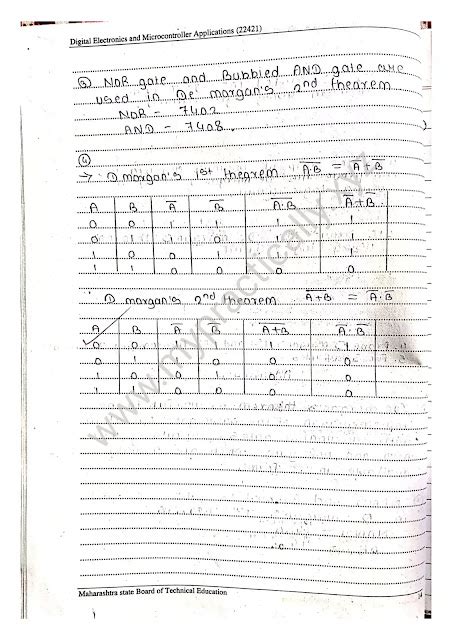 Digital Electronics and Microcontroller Applications (22421)
③ NOR gate and Bubbled AND gate are
used in De morgan's 2nd theorem
NOR - 7402
AND - 7408.
④
→ D morgan's 1st theorem A̅·̅B̅ = A̅+B̅
A B A̅ B̅ A̅·̅B̅ A̅+B̅
0 0 1 1 1 1
0 1 1 0 1 1
1 0 0 1 1 1
1 1 0 0 0 0
D morgan's 2nd theorem A̅+̅B̅ = A̅·B̅
A B A̅ B̅ A+B A̅·B̅
0 0 1 1 1 1
0 1 1 0 0 0
1 0 0 1 0 0
1 1 0 0 0 0
www.mypractically.xyz
Maharashtra state Board of Technical Education